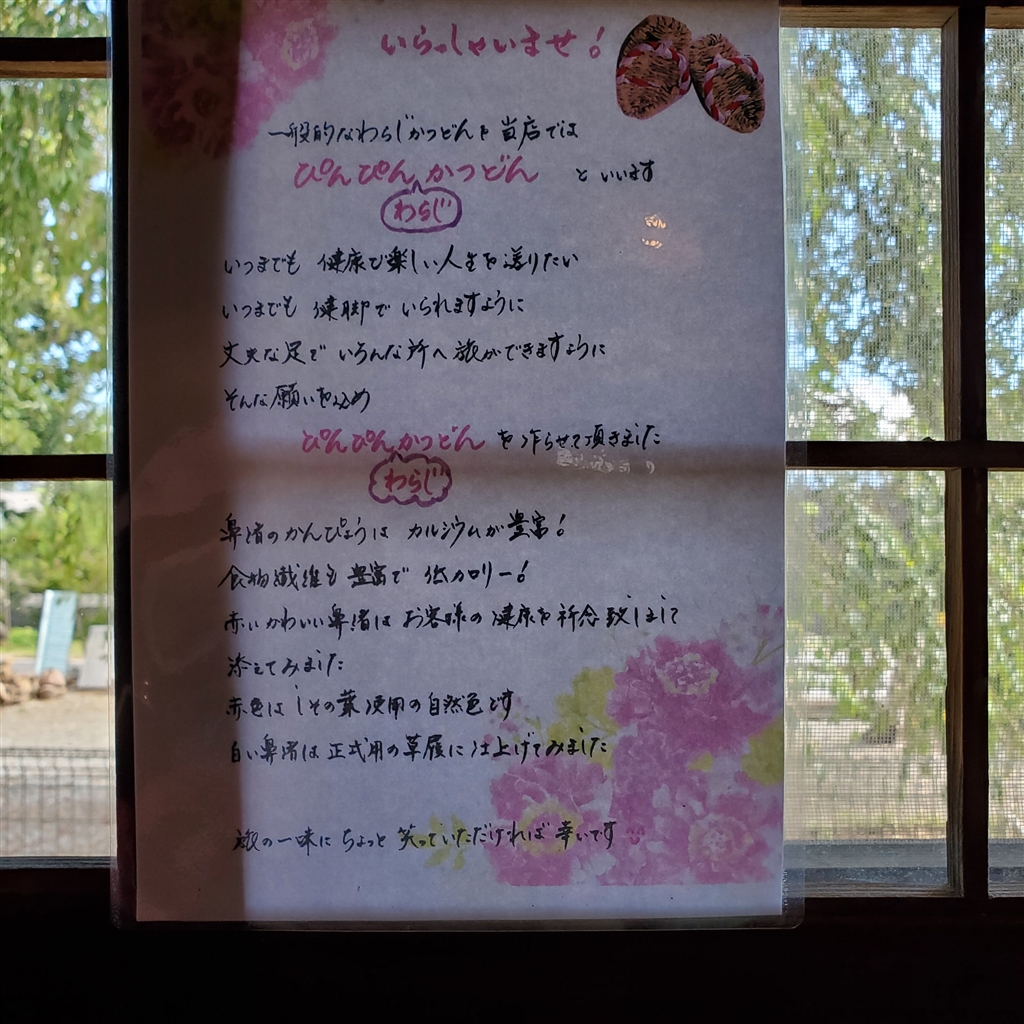 いらっしゃいませ!
一般的なわらじかつどんを当店では
ぴんぴんかつどん といいます
わらじ
いつまでも 健康で楽しい人生を送りたい
いつまでも 健脚で いられますように
丈夫な足で いろんな所へ 旅ができますように
そんな願いを込め
ぴんぴんかつどん を作らせて頂きました
わらじ
鼻緒のかんぴょうは カルシウムが豊富!
食物繊維も豊富で 低カロリー!
赤いかわいい鼻緒は お客様の 健康を祈念致しまして
添えてみました
赤色は しその葉使用の自然色です
白い鼻緒は 正式用の草履に仕上げてみました
旅の一味に ちょっと 笑っていただければ 幸いです